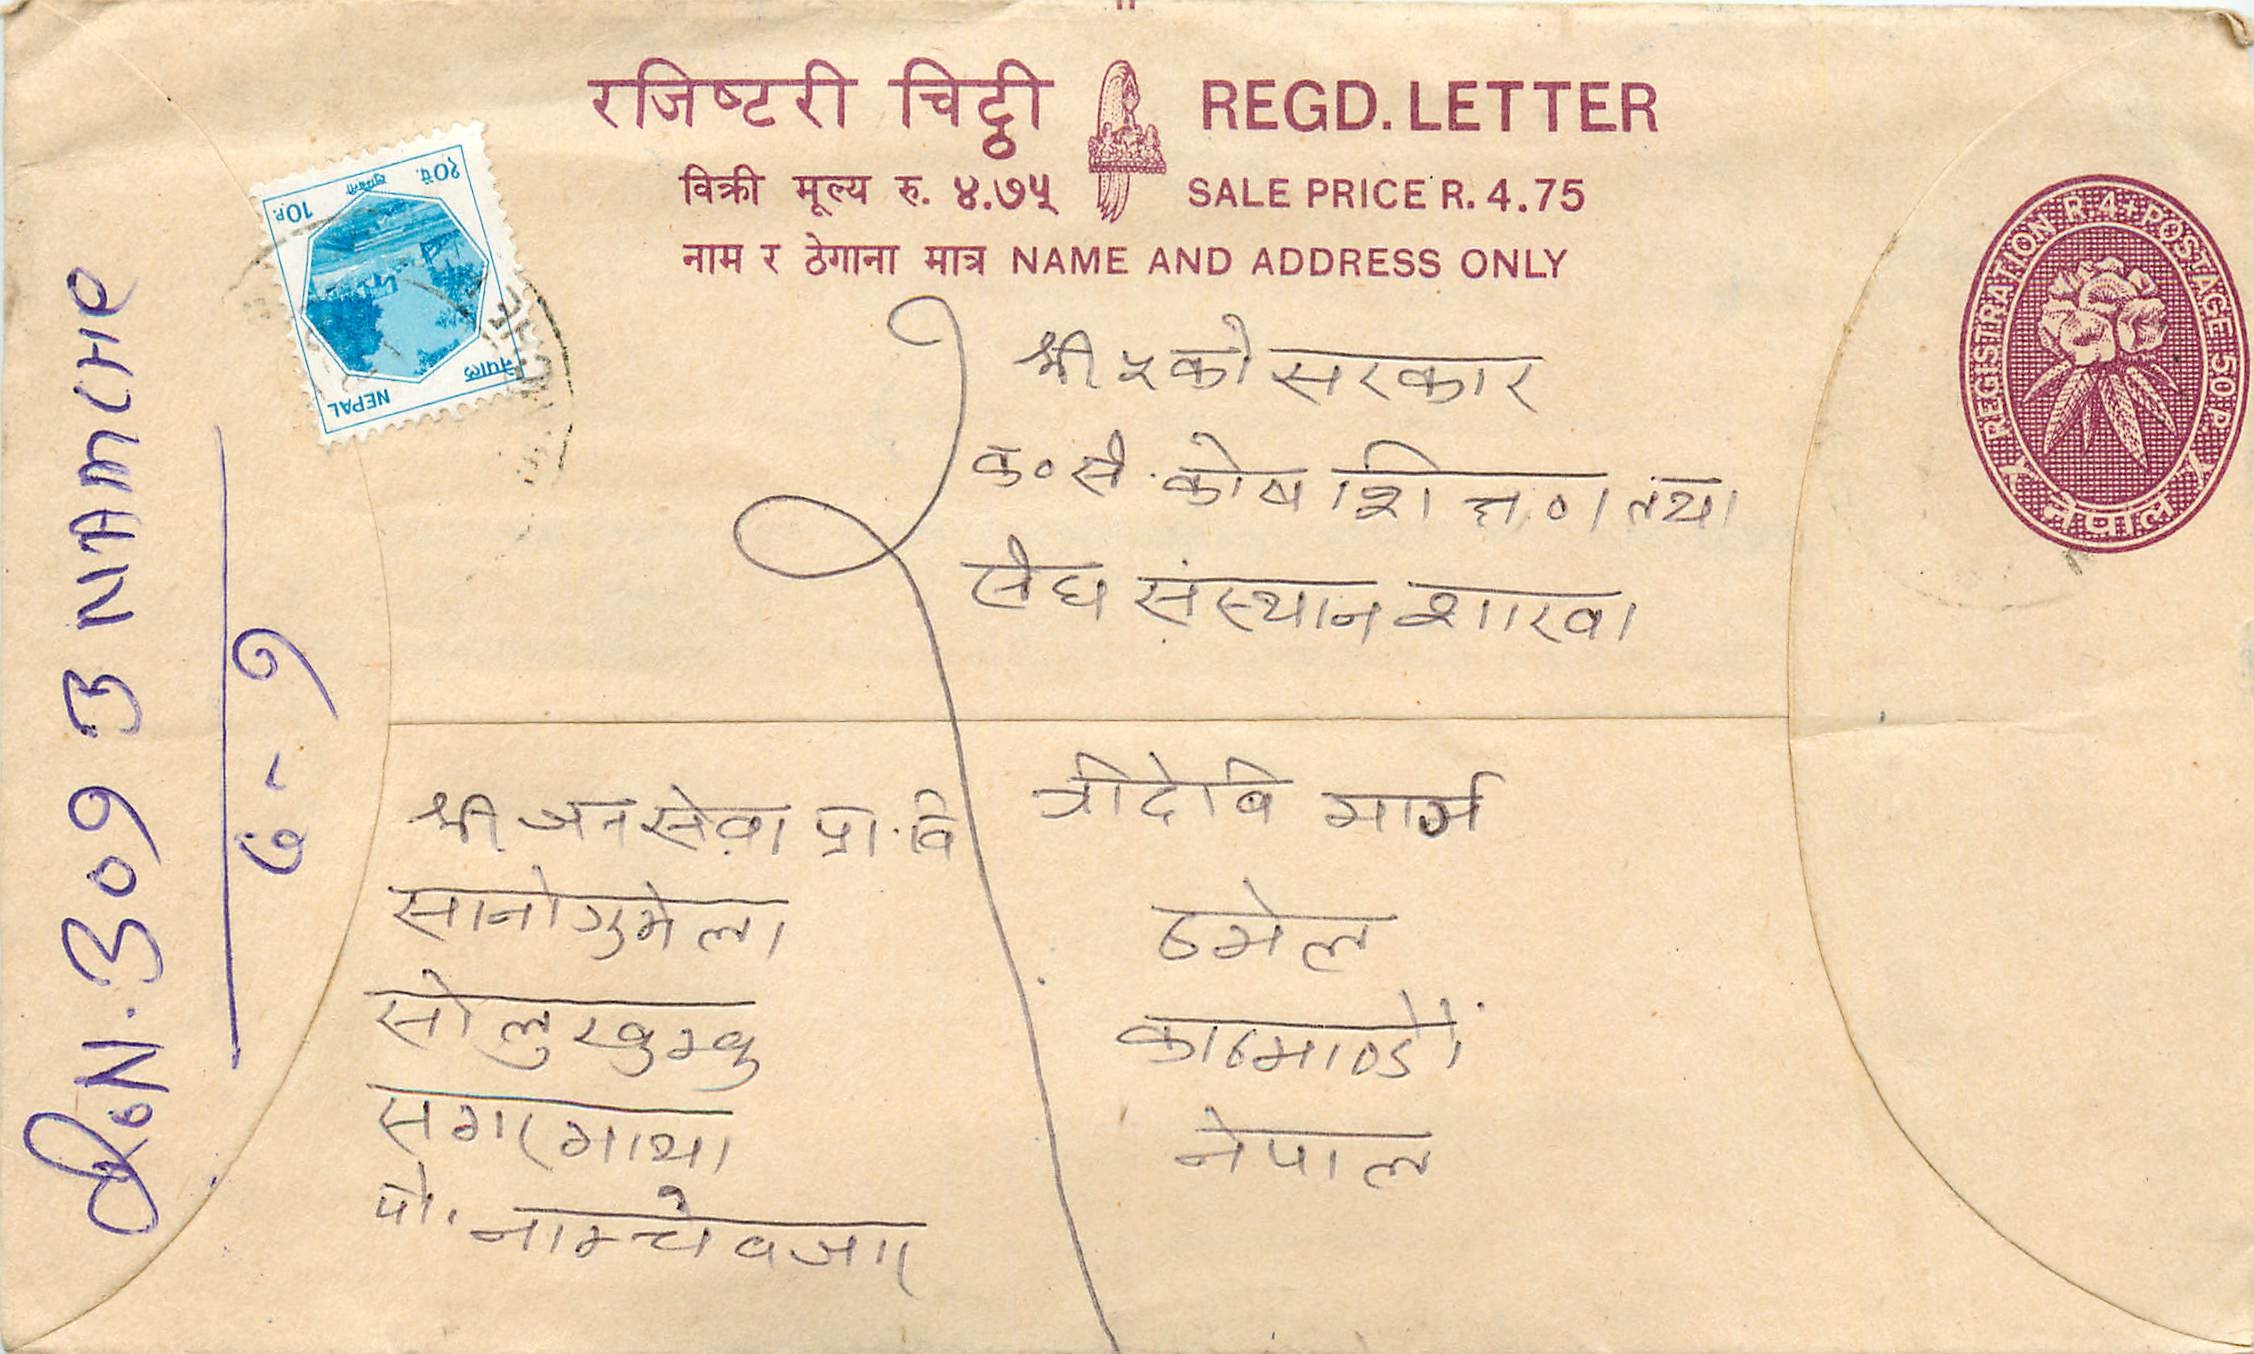 रजिष्टरी चिट्ठी REGD. LETTER
विक्री मूल्य रु. ४.७५ SALE PRICE R. 4.75
नाम र ठेगाना मात्र NAME AND ADDRESS ONLY
REGISTRATION R.4+POSTAGE 50 P.
नेपाल
१० पै. लुम्बिनी 10 P.
नेपाल
NEPAL
श्री ५ को सरकार
क० सं. कोष शि त्त ण तथा
संघ संस्थान शाखा
त्रीदेबि मार्ग
ठमेल
काठमाण्डौं
नेपाल
श्री जनसेवा प्रा. बि
सानोगुमेला
सोलुखुम्बु
सगरमाथा
पो. नाम्चे वजार
N. 309 3 NAMCHE
७-१